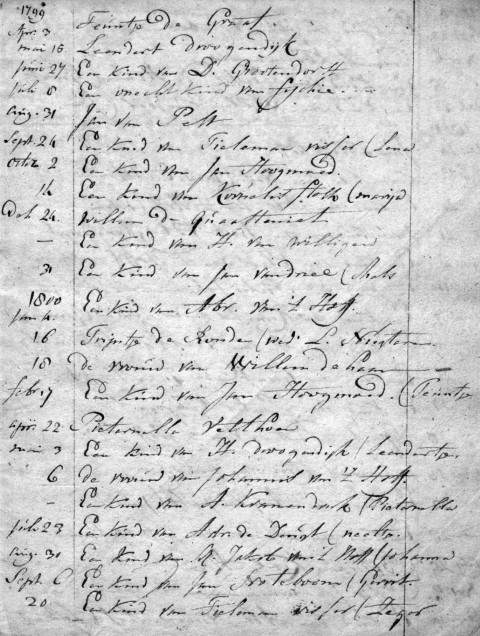 1799
Apr. 3 Teuntje de Graaf.
mai 15 Leendert droogendijk
Juni 27 Een kind van D. Grootendorst
Juli 8 Een onecht kind van Sijchie...
aug. 31 Jan van Pelt
Sept. 24 Een kind van Tieleman visser (Lena
Octob 2 Een kind van Jan Hoogmoed.
14 Een kind van Kornelis Stolk (marija
Dec. 24. Willem de
— Een kind van H. van willigen
31 Een kind van Jan vandriel (
1800
Jan 4. Een kind van Abr. van 't Hoff.
16 Trijntje de Konder (wed: L.
18 de vrouw van Willem de haan —
febr. 7 Een kind van Jan Hoogmoed. (Teuntje
apr. 22 Pieternella Velthoen
mai 3 Een kind van H. droogendijk (Leendertje.
6 de vrouw van Johannes van 't Hoff.
- Een kind van A. Kranendonk (Pieternella
Juli 23 Een kind van Adr. de Druijt (neeltje.
aug. 30 Een kind van Jakob van 't Hoff (Johanna
Sept. 6 Een kind van Jan Noteboom (Gerrit.
20 Een kind van Tieleman visser (Zeger